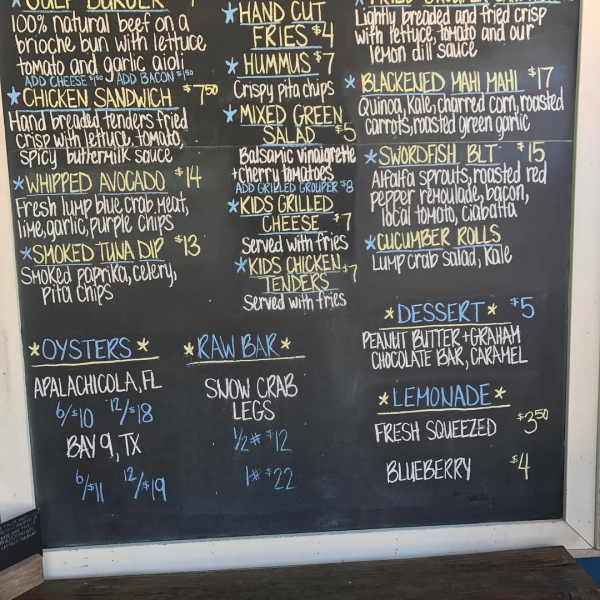 GULF BURGER
100% natural beef on a
brioche bun with lettuce
tomato and garlic aioli
ADD CHEESE $1.50 ADD BACON $1.50
CHICKEN SANDWICH $7.50
Hand breaded tenders fried
crisp with lettuce, tomato,
spicy buttermilk sauce
WHIPPED AVOCADO $14
Fresh lump blue crab meat,
lime, garlic, purple chips
SMOKED TUNA DIP $13
Smoked paprika, celery,
Pita chips
HAND CUT
FRIES $4
HUMMUS $7
Crispy pita chips
MIXED GREEN
SALAD $5
Balsamic vinaigrette
+ cherry tomatoes
ADD GRILLED GROUPER $8
KIDS GRILLED
CHEESE $7
Served with fries
KIDS CHICKEN $7
TENDERS
Served with fries
Lightly breaded and fried crisp
with lettuce, tomato and our
lemon dill sauce
BLACKENED MAHI MAHI $17
Quinoa, Kale, charred corn, roasted
carrots, roasted green garlic
SWORDFISH BLT $15
Alfalfa sprouts, roasted red
pepper remoulade, bacon,
local tomato, ciabatta
CUCUMBER ROLLS
Lump crab salad, Kale
OYSTERS
APALACHICOLA, FL
6/$10 12/$18
BAY 9, TX
6/$11 12/$19
RAW BAR
SNOW CRAB
LEGS
1/2# $12
1# $22
DESSERT $5
PEANUT BUTTER + GRAHAM
CHOCOLATE BAR, CARAMEL
LEMONADE
FRESH SQUEEZED $3.50
BLUEBERRY $4